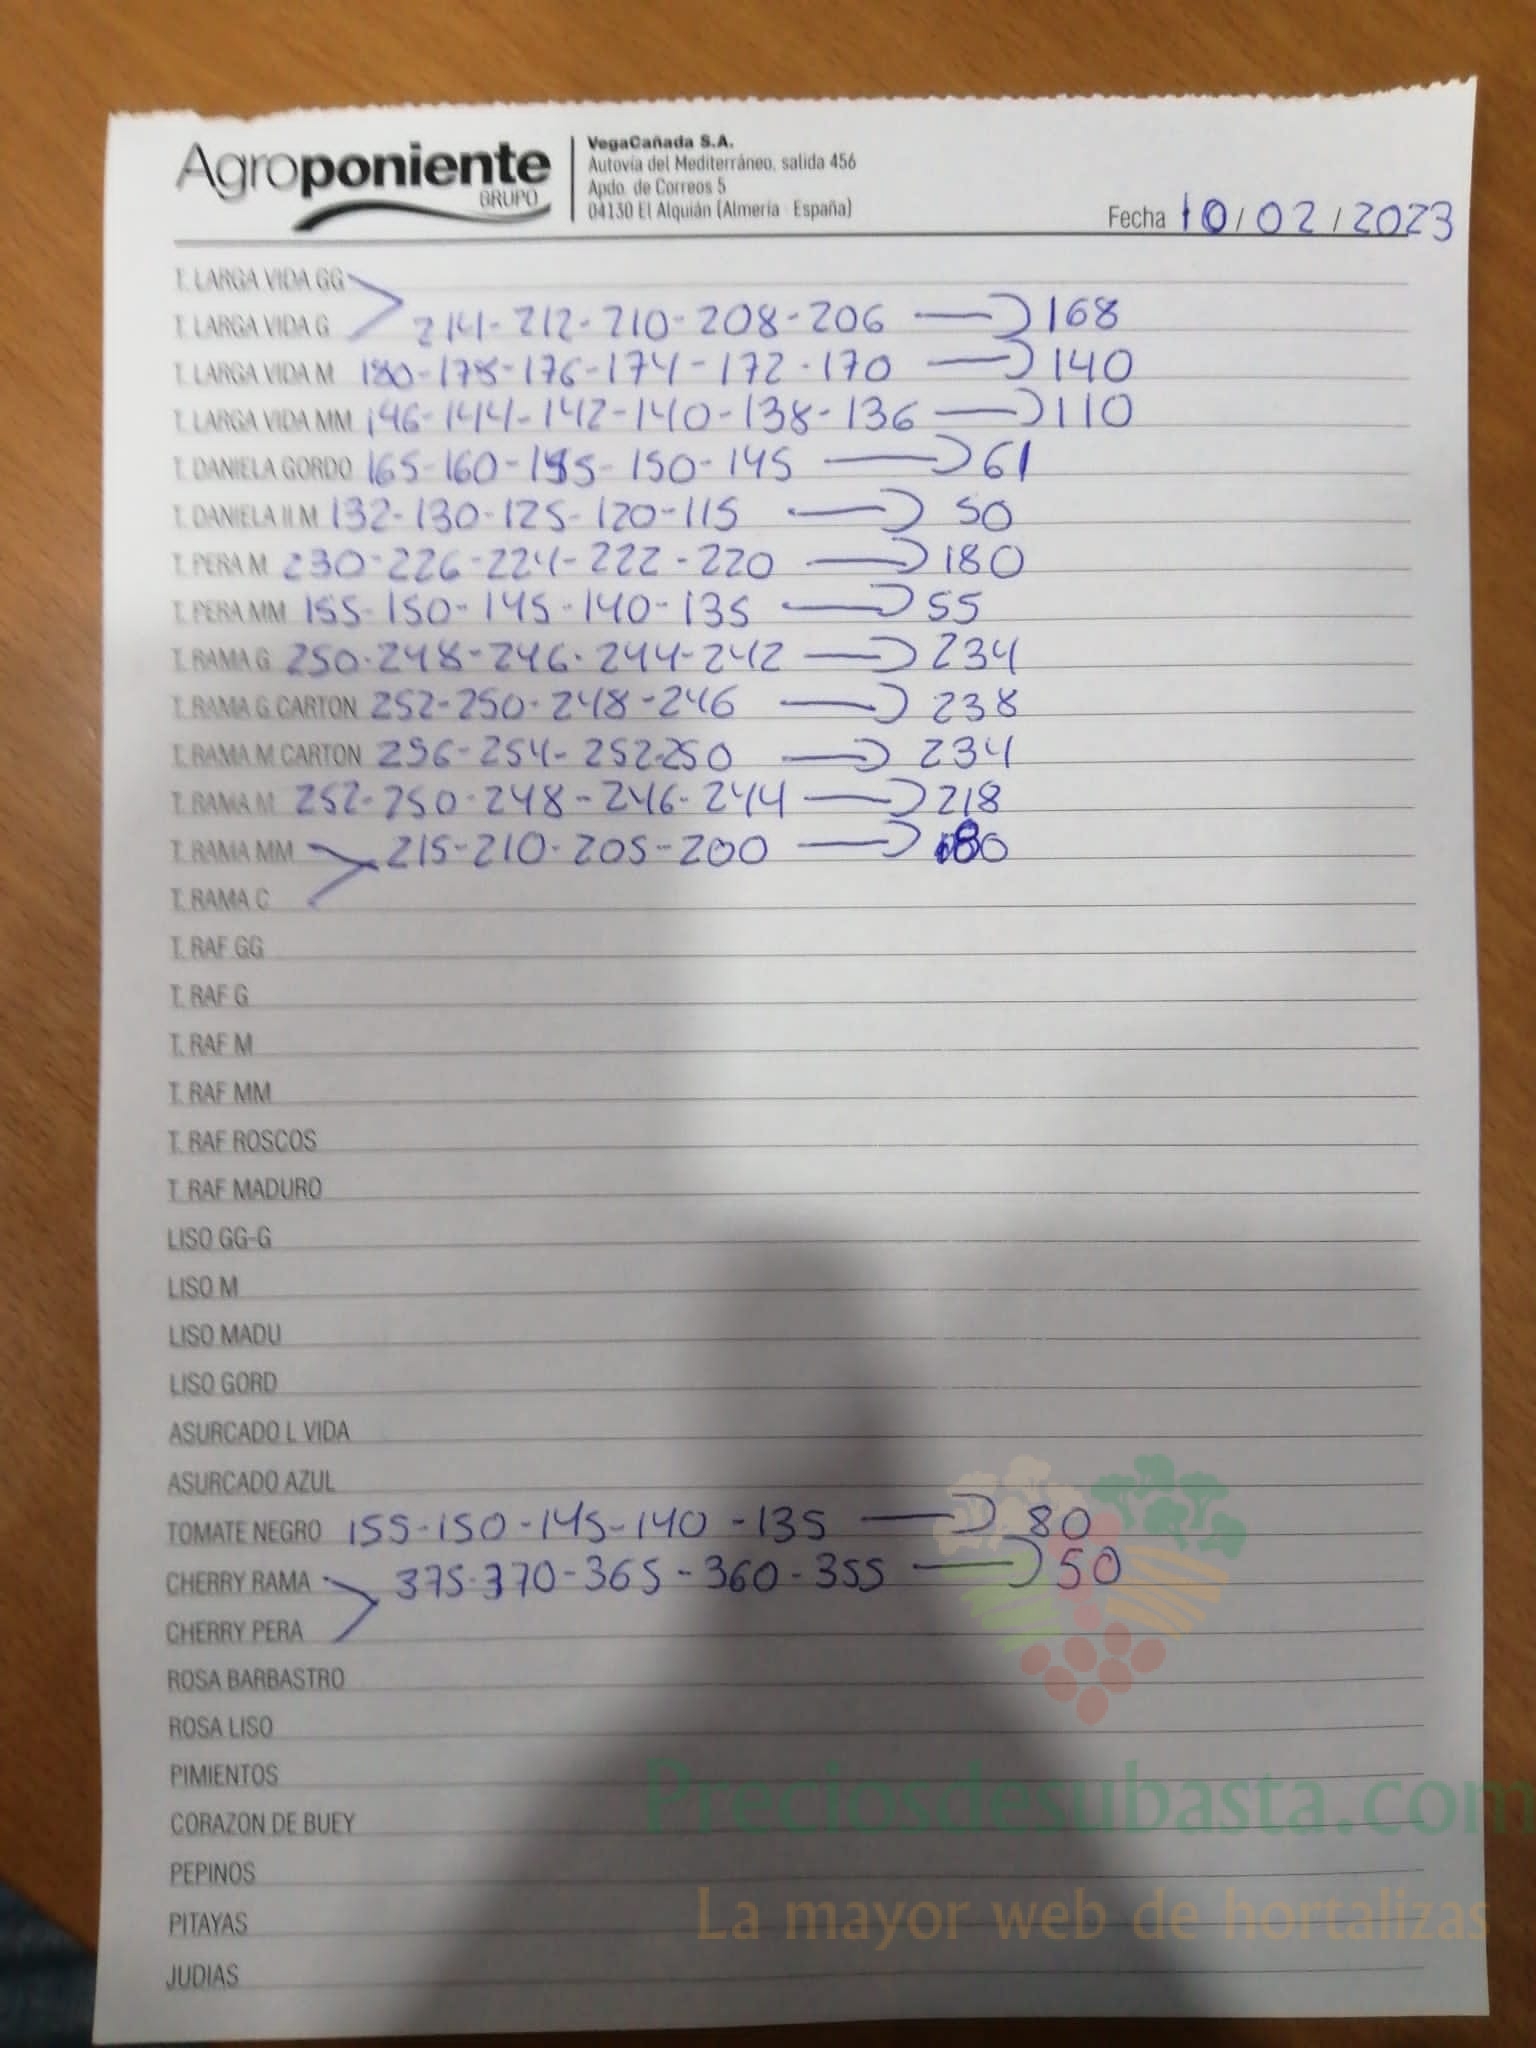 Agroponiente
GRUPO
VegaCañada S.A.
Autovía del Mediterráneo, salida 456
Apdo. de Correos 5
04130 El Alquián (Almería - España)
Fecha 10/02/2023
T. LARGA VIDA GG
T. LARGA VIDA G 214-212-210-208-206 168
T. LARGA VIDA M 180-178-176-174-172-170 140
T. LARGA VIDA MM 146-144-142-140-138-136 110
T. DANIELA GORDO 165-160-155-150-145 61
T. DANIELA II M 132-130-125-120-115 50
T. PERA M 230-226-224-222-220 180
T. PERA MM 155-150-145-140-135 55
T. RAMA G 250-248-246-244-242 234
T. RAMA G CARTON 252-250-248-246 238
T. RAMA M CARTON 256-254-252-250 234
T. RAMA M 252-250-248-246-244 218
T. RAMA MM 215-210-205-200 180
T. RAMA C
T. RAF GG
T. RAF G
T. RAF M
T. RAF MM
T. RAF ROSCOS
T. RAF MADURO
LISO GG-G
LISO M
LISO MADU
LISO GORD
ASURCADO L VIDA
ASURCADO AZUL
TOMATE NEGRO 155-150-145-140-135 80
CHERRY RAMA 375-370-365-360-355 50
CHERRY PERA
ROSA BARBASTRO
ROSA LISO
PIMIENTOS
Preciosdesubasta.com
CORAZON DE BUEY
PEPINOS
La mayor web de hortalizas
PITAYAS
JUDIAS